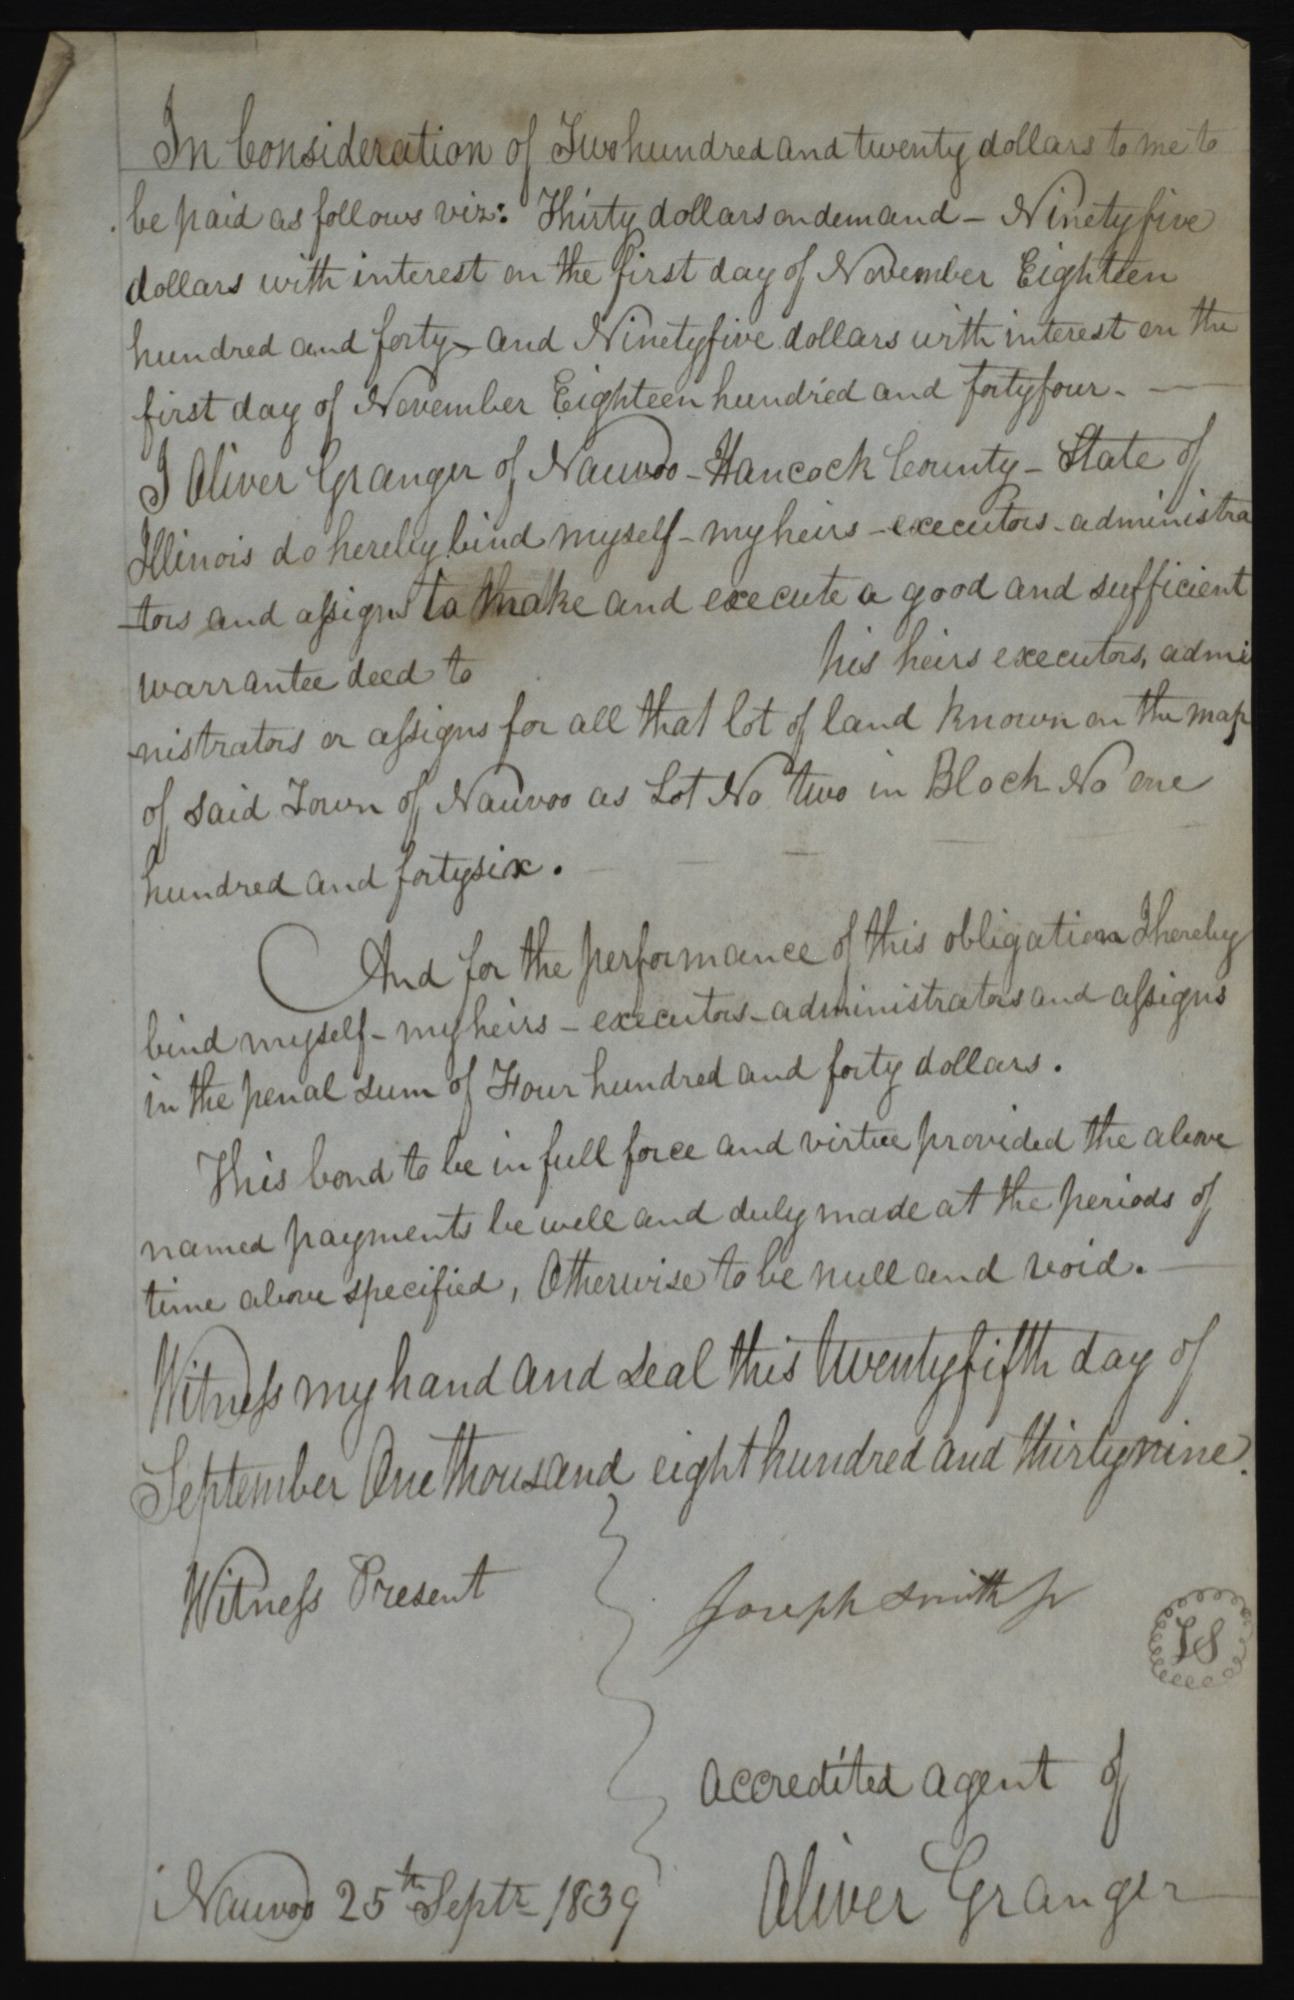 In Consideration of Two hundred and twenty dollars to me to
be paid as follows viz: Thirty dollars on demand – Ninetyfive
dollars with interest on the first day of November Eighteen
hundred and forty, and Ninetyfive dollars with interest on the
first day of November Eighteen hundred and fortyfour. —
I Oliver Granger of Nauvoo – Hancock County – State of
Illinois do hereby bind myself – my heirs – executors – administra
-tors and assigns to make and execute a good and sufficient
warrantee deed to his heirs executors, admi
-nistrators or assigns for all that lot of land known on the map
of said Town of Nauvoo as Lot No two in Block No one
hundred and fortysix.
And for the performance of this obligation I hereby
bind myself – my heirs – executors – administrators and assigns
in the penal sum of Four hundred and forty dollars.
This bond to be in full force and virtue provided the above
named payments be well and duly made at the periods of
time above specified, Otherwise to be null and void. —
Witness my hand and seal this twentyfifth day of
September One thousand eight hundred and thirtynine.
Witness Present
Joseph Smith Jr
LS
accredited agent of
Oliver Granger
Nauvoo 25th Septr 1839